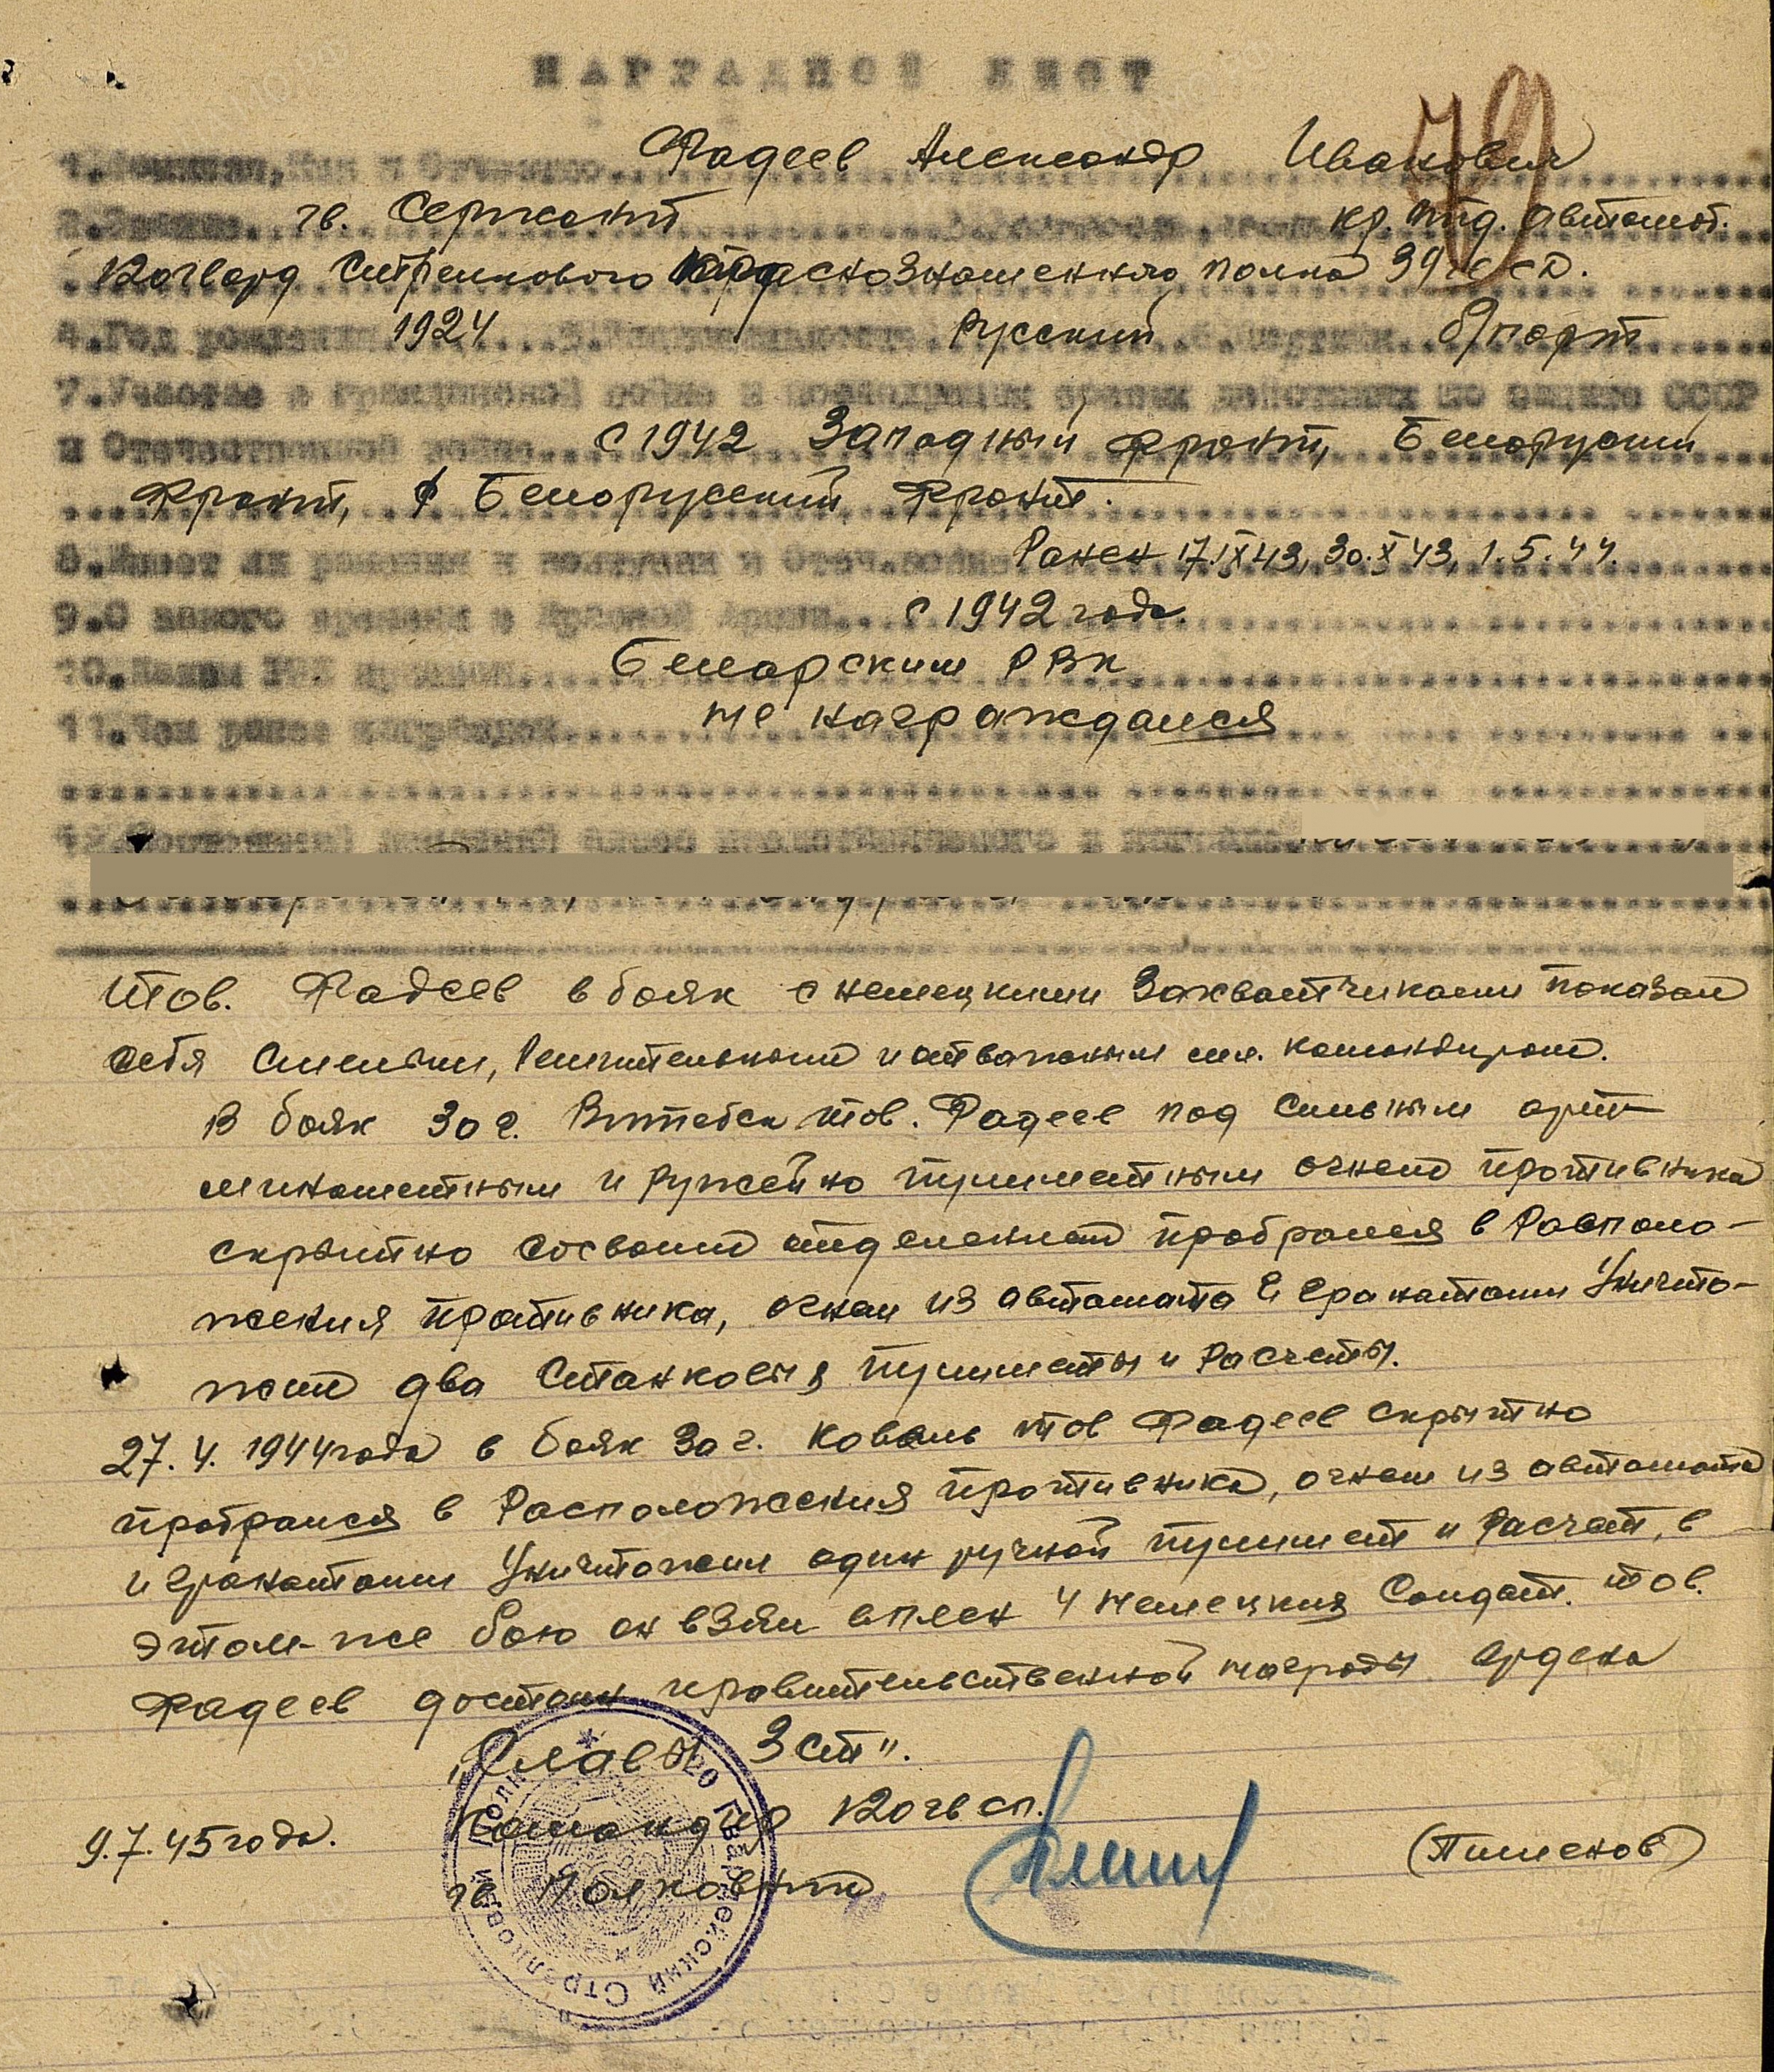 НАГРАДНОЙ ЛИСТ
79
1.Фамилия, Имя и Отчество Фадеев Александр Иванович
2.Звание гв. Сержант 3.Должность, часть к-р. отд. автомат.
120 гвард Стрелкового Краснознаменного полка 39 гв СД.
4.Год рождения 1924 5.Национальность Русский 6.Партийн. б/парт
7.Участие в гражданской войне и последующих боевых действиях по защите СССР
и Отечественной войне с 1942 Западный фронт, Белоруский
Фронт, 1 Белорусский Фронт.
8.Имеет ли ранения и контузии в Отеч.войне Ранен 17.IX 43, 30.X 43, 1.5.44.
9.С какого времени в Красной Армии с 1942 года.
10.Каким РВК призван Белярским РВК
11.Чем ранее награжден не награждался
12.Постоянный домашний адрес представляемого к награде
Тов. Фадеев в боях с немецкими захватчиками показал
себя смелым, решительным и отважным мл. командиром.
В боях за г. Витебск тов. Фадеев под сильным арт-
минометным и ружейно пулиметным огнем противника
скрытно сосвоим отделением пробрался в Располо-
жения противника, огнем из автомата и гранатами Уничто-
жил два Станковых пулиметы и Расчеты.
27.4.1944 года в боях за г. Ковель тов Фадеев скрытно
пробрался в Расположения противника, огнем из автомата
и гранатами Уничтожил один ручной пулимет и Расчет, в
этом-же бою он взял вплен 4 немецких Солдат. тов.
Фадеев достоин правительственной награды ордена
„Славы 3 ст".
Командир 120 гв сп.
9.7.45 года. гв Полковник (Пименов)
120 Гвардейский Стрелковый Полк